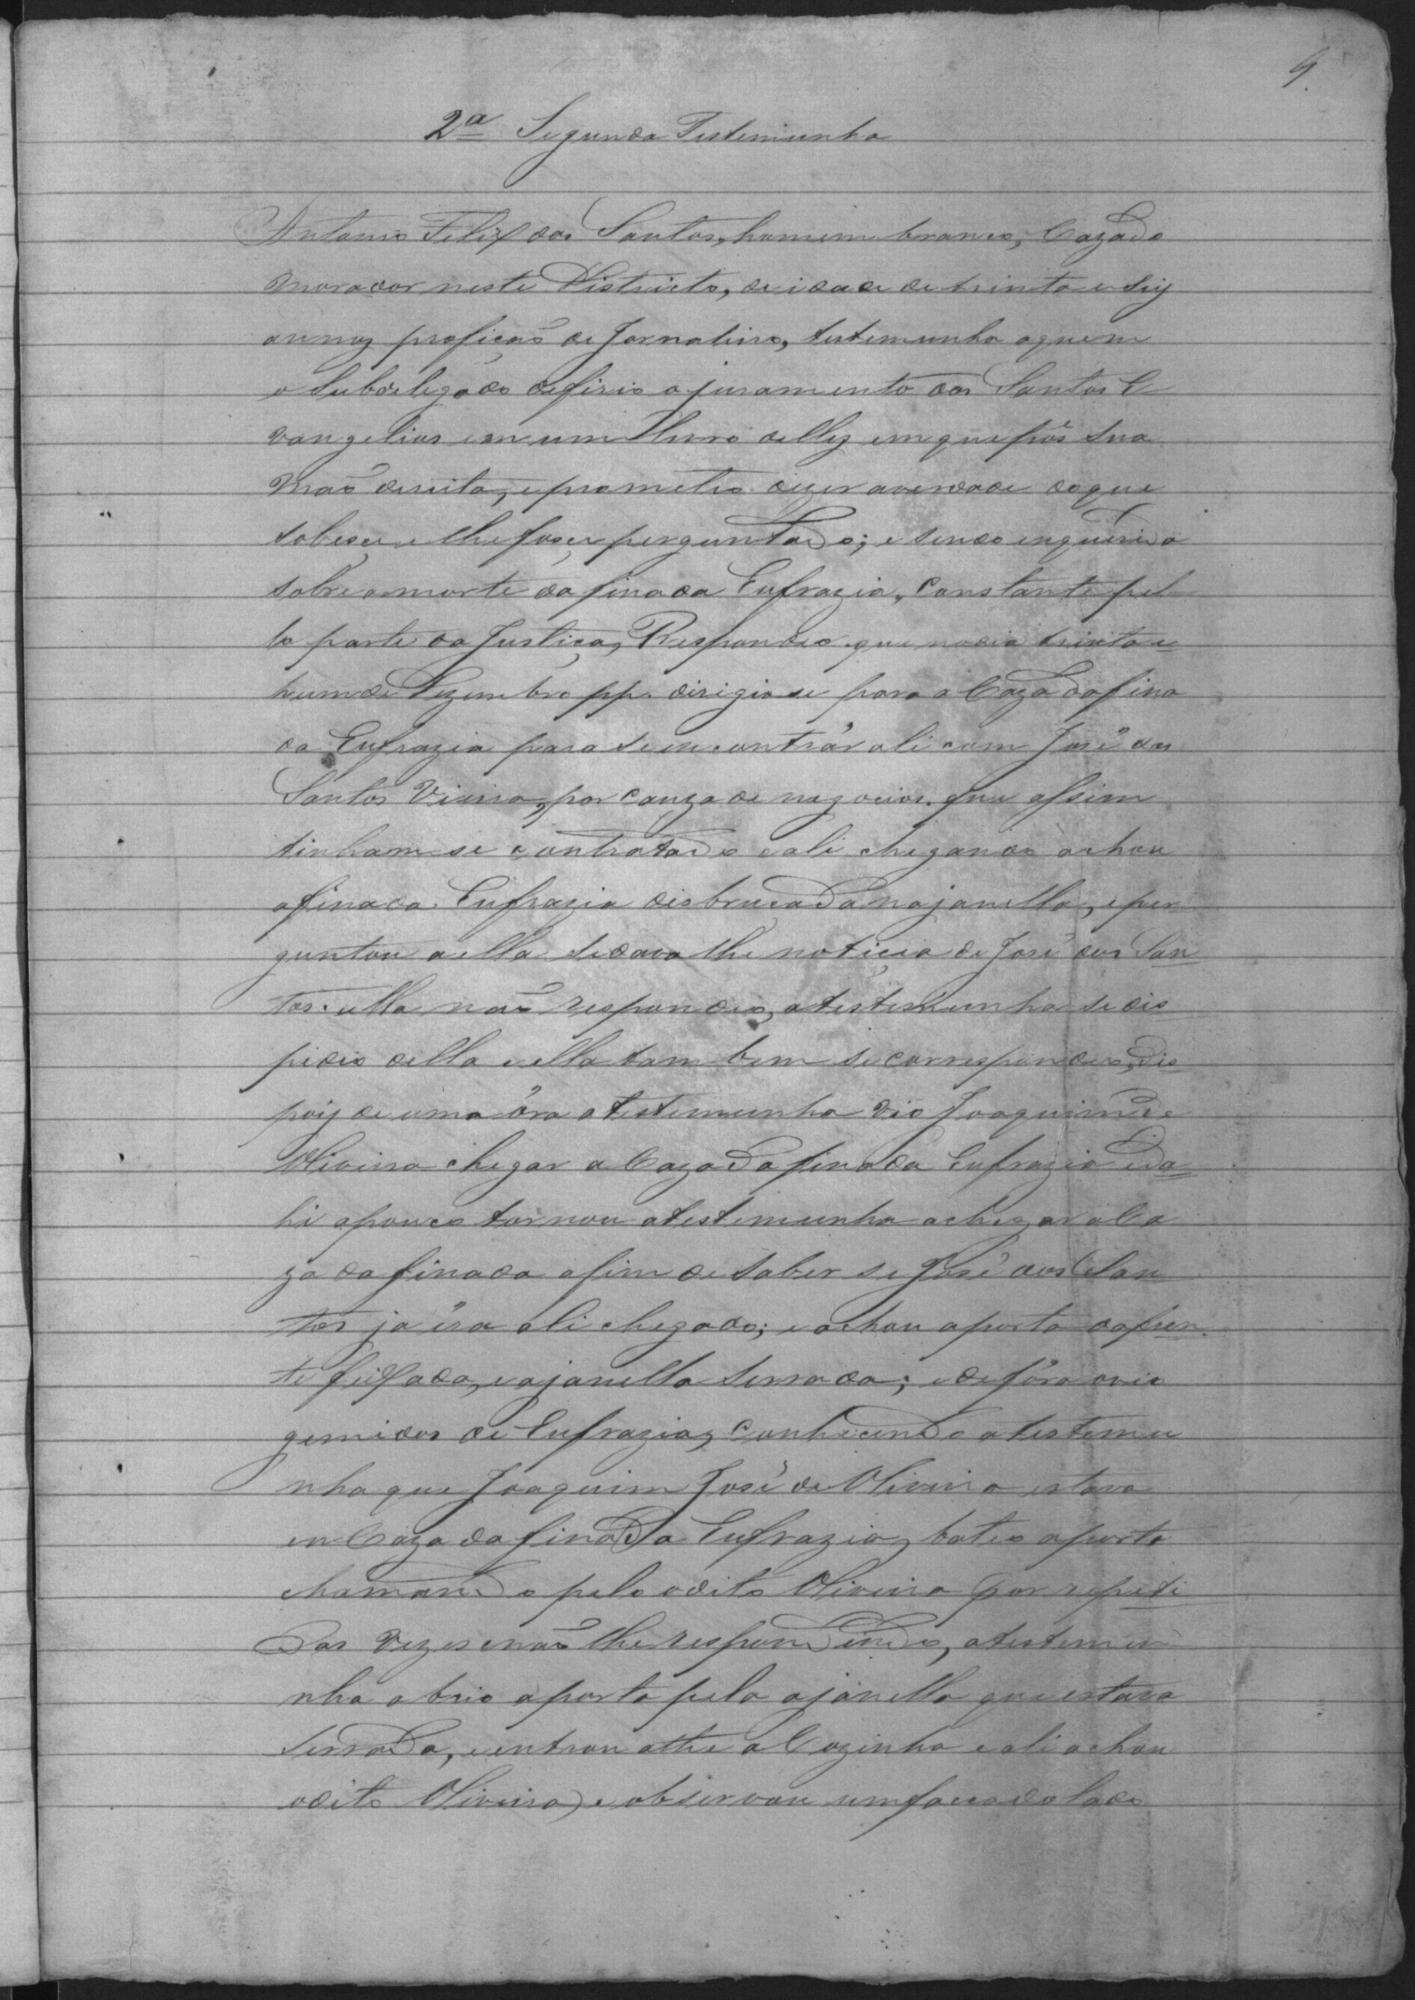 9.
2ª Segunda Testemunha
Antonio Felix dos Santos, homem branco, Cazado
morador neste Districto, de idade de trinta e seis
annos profição de Jornaleiro, testemunha a quem
o Subdelegado defirio o juramento dos Santos E
vangelios em um livro delles em que pôs sua
mão direita, e prometio dizer a verdade do que
sobesse e lhe fosse perguntado; e sendo enquerida
sobre a morte da finada Eufrazia, Constante pel
la parte da Justiça, Respondeo que no dia trinta e
hum de Dezembro pp. dirigio se para a Caza da fina
da Eufrazia para se incontrár ali com José dos
Santos Vieira, por cauza de negocios que assim
tinham se contratado e ali chegando achou
a finada Eufrazia disbruçada na janella, e per
guntou a ella se dava lhe noticia de José dos San
tos. ella não respondeo, a testemunha se dis
pidio della e ella tambem se correspondeo, des
pois de uma óra a testemunha vio Joaquim de
Oliveira chegar a Caza da finada Eufrazia e da
hi a pouco tornou a testemunha a chegar a Ca
za da finada a fim de saber se José dos San
tos já éra ali chegado; e achou a porta da fren
te feixada, e a janella serrada; e de fóra ovio
gemidos de Eufrazia, Conhecendo a testemu
nha que Joaquim José de Oliveira estava
em Caza da finada Eufrazia, bateo a porta
chamando pelo o dito Oliveira por repeti
das vezes e não lhe respondendo, a testemu
nha abrio a porta pela a janella que estava
serrada, e entrou athe a Cozinha e ali achou
o dito Oliveira, e observou um faca do lado